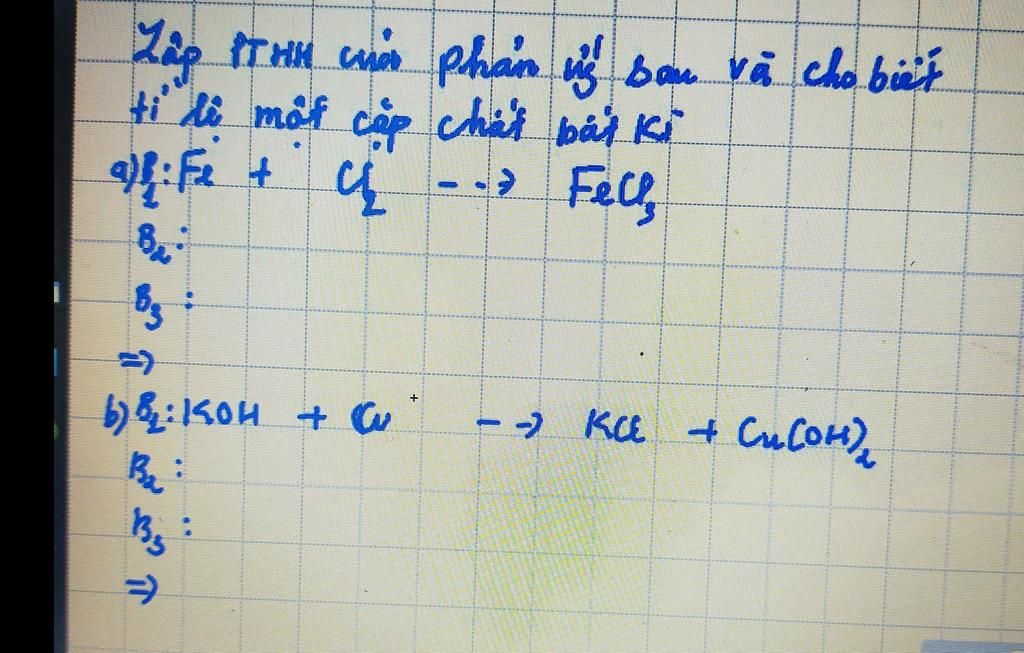 Lập PTHH của phản ứng sau và cho biết
tỉ lệ một cặp chất bất kì
a) B1: Fe + Cl2 --> FeCl3
B2:
B3:
=>
b) B1: KOH + Cu --> KCl + Cu(OH)2
B2:
B3:
=>